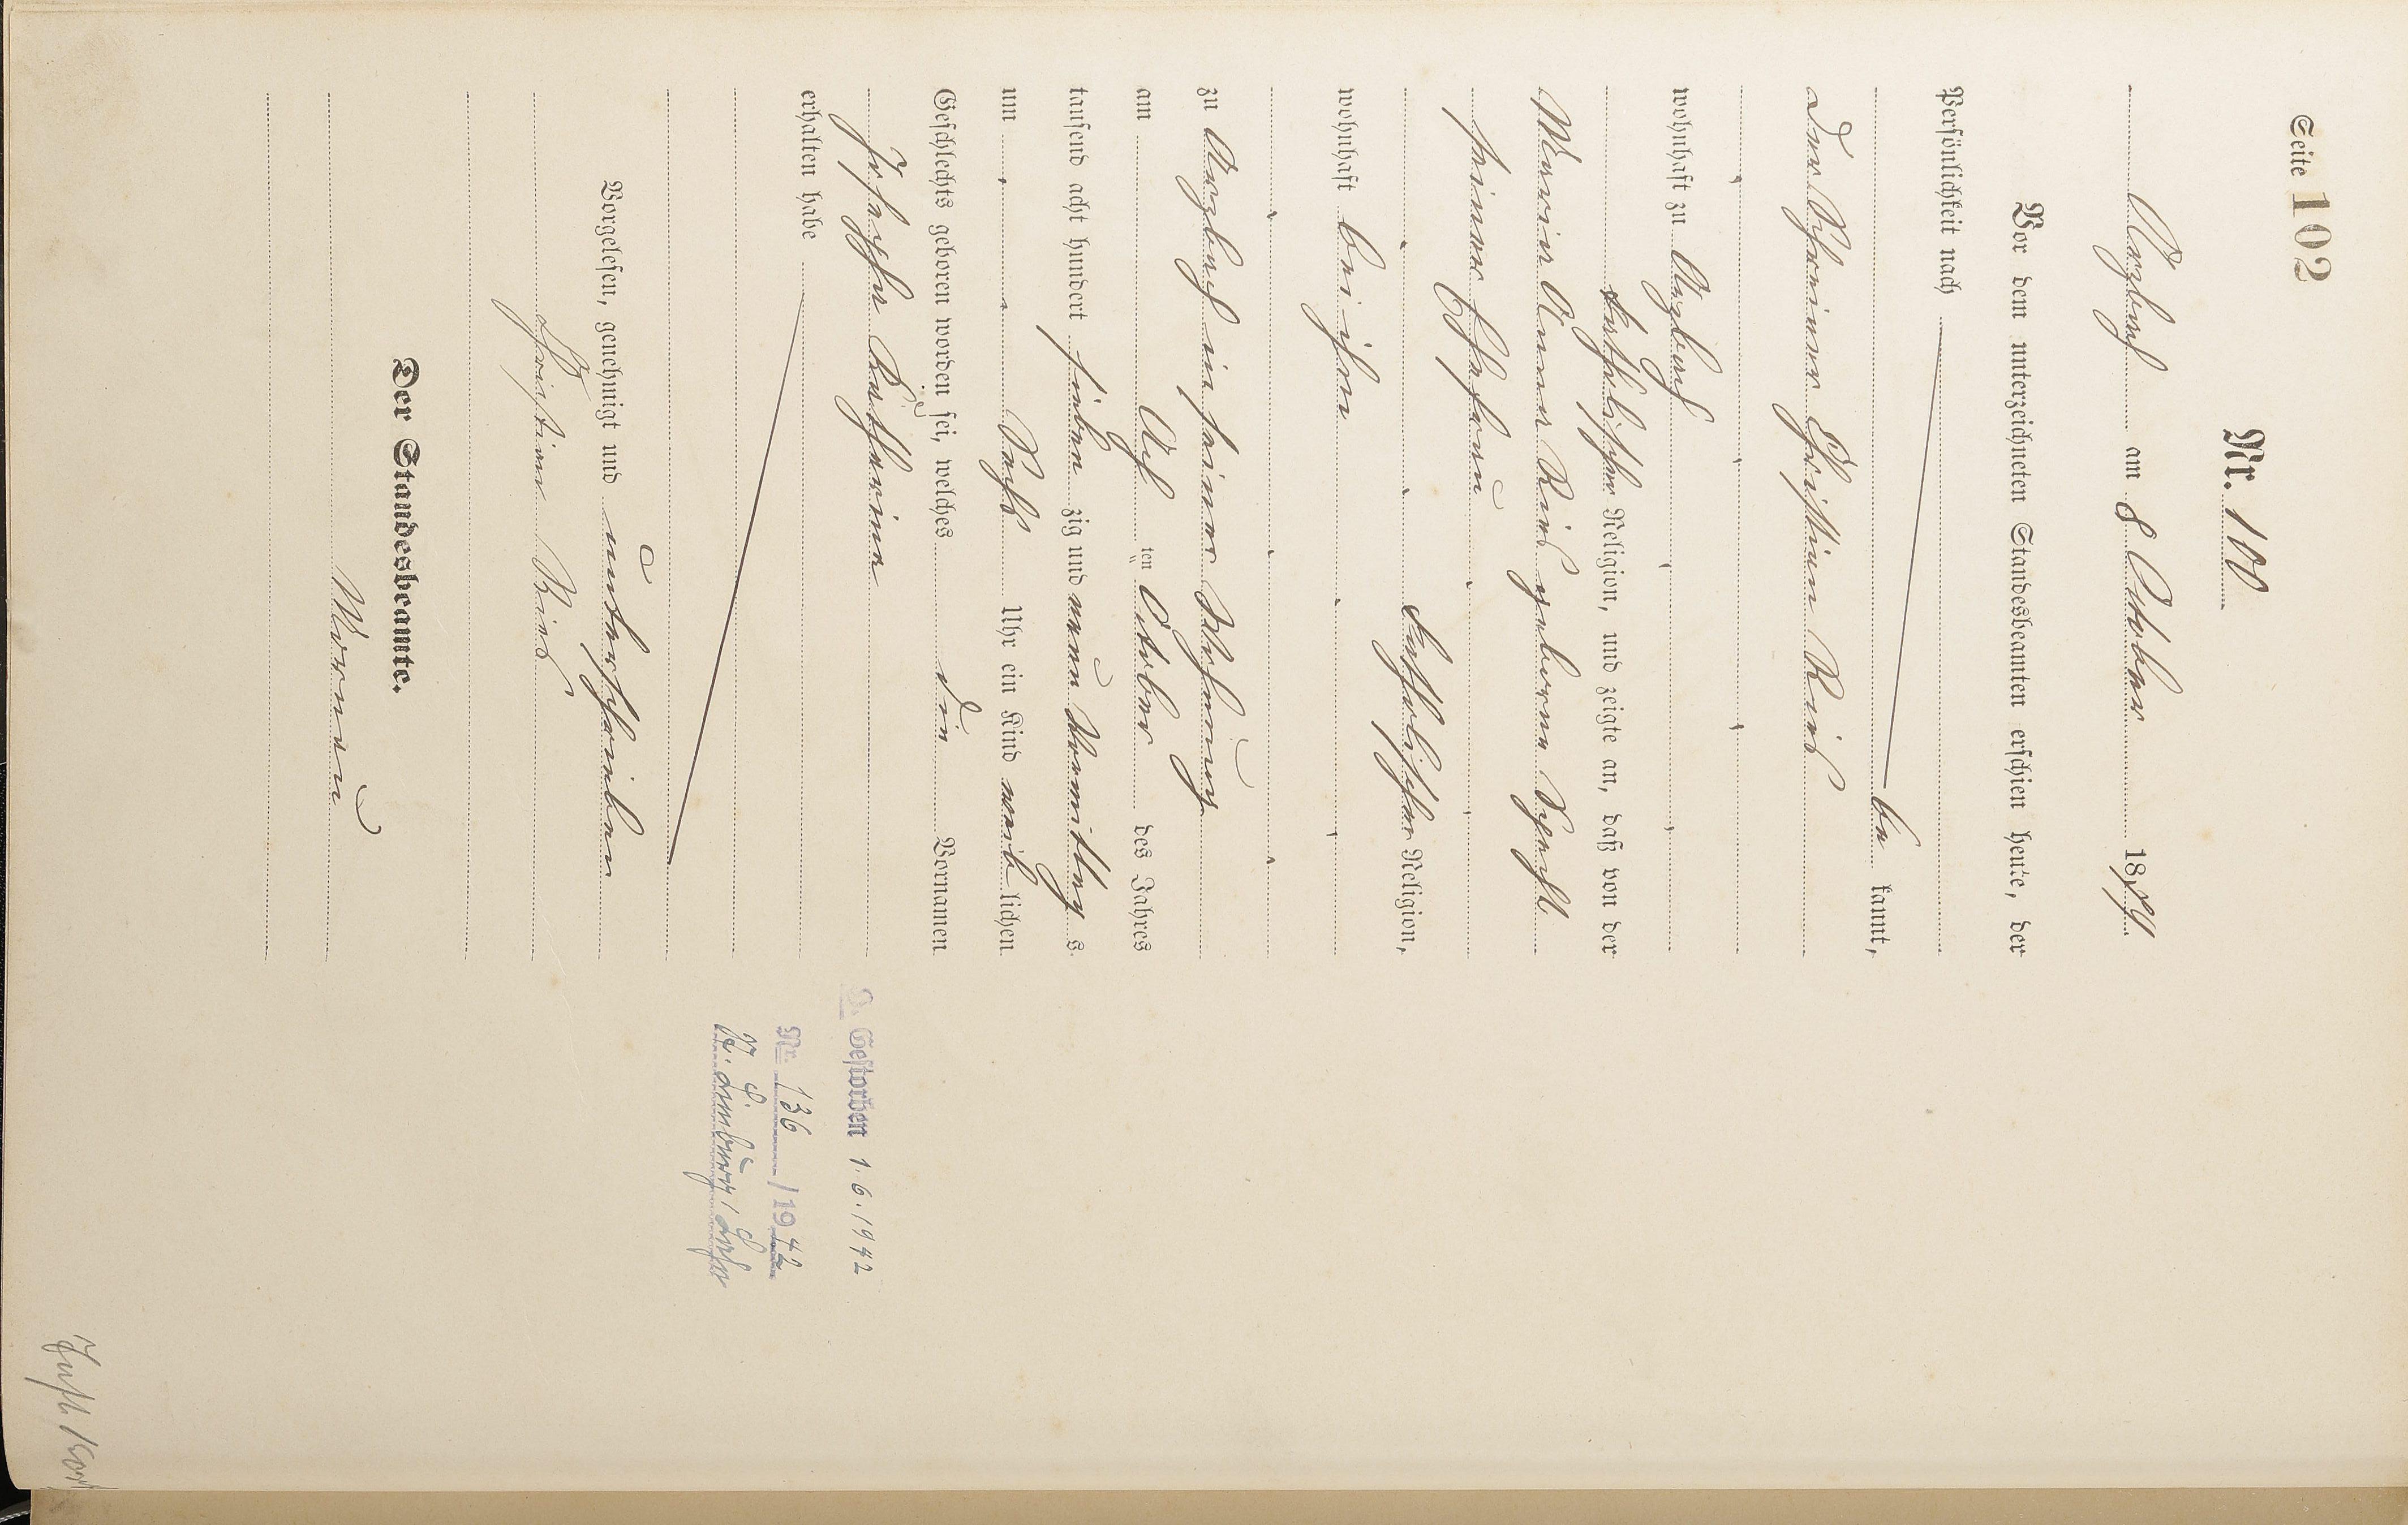 Seite 102
Nr. 100
Arzbach am 8 October 1879.
Vor dem unterzeichneten Standesbeamten erschien heute, der
Persönlichkeit nach
be kannt,
der Schreiner Christian
wohnhaft zu Arzbach
katholischer Religion, und zeigte an, daß von der
Maria Anna geborene
seiner Ehefrau
katholischer Religion,
wohnhaft bei ihm
zu Arzbach in seiner Wohnung
am Acht ten October des Jahres
tausend acht hundert sieben zig und neun Vormittag s
um Sechs Uhr ein Kind weib lichen
Geschlechts geboren worden sei, welches die Vornamen
Josepha Katharina
erhalten habe
Vorgelesen, genehmigt und unterschrieben
Christian
Der Standesbeamte.
Gestorben 1.6.1942
Nr. 136 / 1942
Limburg / Lahn